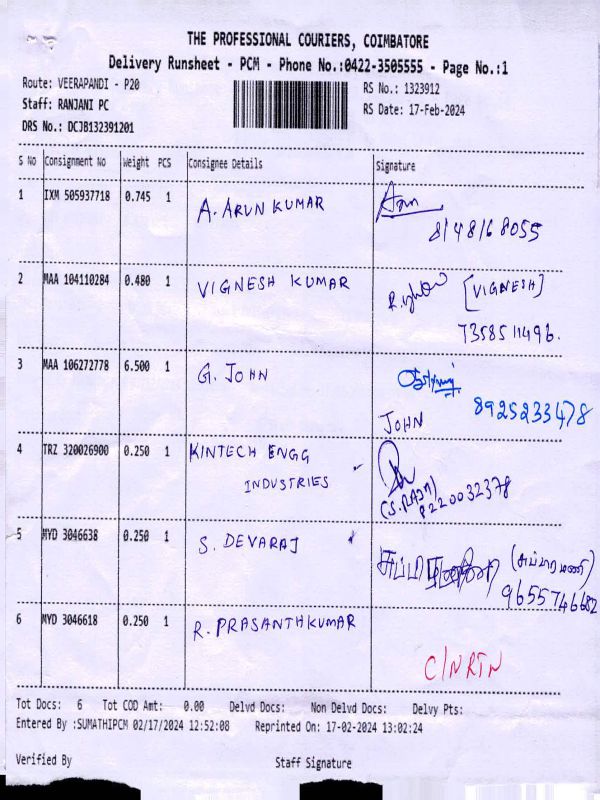 THE PROFESSIONAL COURIERS, COIMBATORE
Delivery Runsheet - PCM - Phone No.:0422-3505555 - Page No.:1
Route: VEERAPANDI - P20 RS No.: 1323912
Staff: RANJANI PC RS Date: 17-Feb-2024
DRS No.: DCJB132391201
S No Consignment No Weight PCS Consignee Details Signature
1 IXM 505937718 0.745 1 A. ARUN KUMAR
8148168055
2 MAA 104110284 0.480 1 VIGNESH KUMAR [VIGNESH]
7358511496.
3 MAA 106272778 6.500 1 G. JOHN
JOHN 8925233478
4 TRZ 320026900 0.250 1 KINTECH ENGG
INDUSTRIES
(S.RAJA)
8220032378
5 MYD 3046638 0.250 1 S. DEVARAJ
(சுப்பிரமணி)
9655746682
6 MYD 3046618 0.250 1 R. PRASANTHKUMAR
C/N RTN
Tot Docs: 6 Tot COD Amt: 0.00 Delvd Docs: Non Delvd Docs: Delvy Pts:
Entered By :SUMATHIPCM 02/17/2024 12:52:08 Reprinted On: 17-02-2024 13:02:24
Verified By Staff Signature